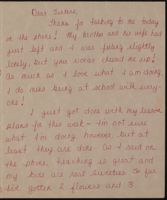 Dear Susane,
Thanx for talking to me today
on the phone! My brother and his wife had
just left and I was feeling slightly
lonely, but you words cheered me up!
As much as I love what I am doing,
I do miss being at school with every-
one!
I just got done with my lesson
plans for this week - I'm not sure
what I'm doing, however, but at
least they are done. As I said on
the phone, teaching is great and
my kids are real sweeties. So far
I've gotten 2 flowers and 3